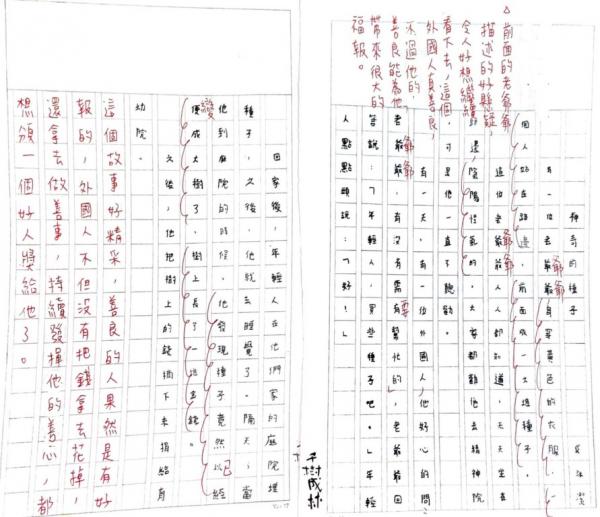 △前面的老爺爺
描述的好懸疑,
令人好想繼續
看下去,這個
外國人真善良,
不過他的
善良能為他
帶來很大的
福報。
神奇的種子
有一位老爺爺,身穿黃色的衣服,一
個人站在路邊,前面
一大堆種子。
這位老爺爺,人人都知道,他坐在
路邊,陰陽怪氣的,大家都勸他去精神病院
可是他一直不聽勸。
有一天,有一位外國人,他好心的問:
老爺爺,有沒有需要幫忙的」老爺爺回
答說:「年輕人,買些種子吧。」年輕
人點點頭說:「好!」
子樹成林
回家後,年輕人在他們家的庭院埋
種子,之後他就去睡覺了。隔天,當
他到庭院的時候,他發現種子竟然已經
變成大樹了,樹上長了一些金錢。
之後,他把樹上的錢摘下來捐給育
幼院。
這個故事好精采,善良的人果然是有好
報的,外國人不但沒有把錢拿去花掉,
還拿去做善事,持續發揮他的善心,都
想頒一個好人獎給他了。